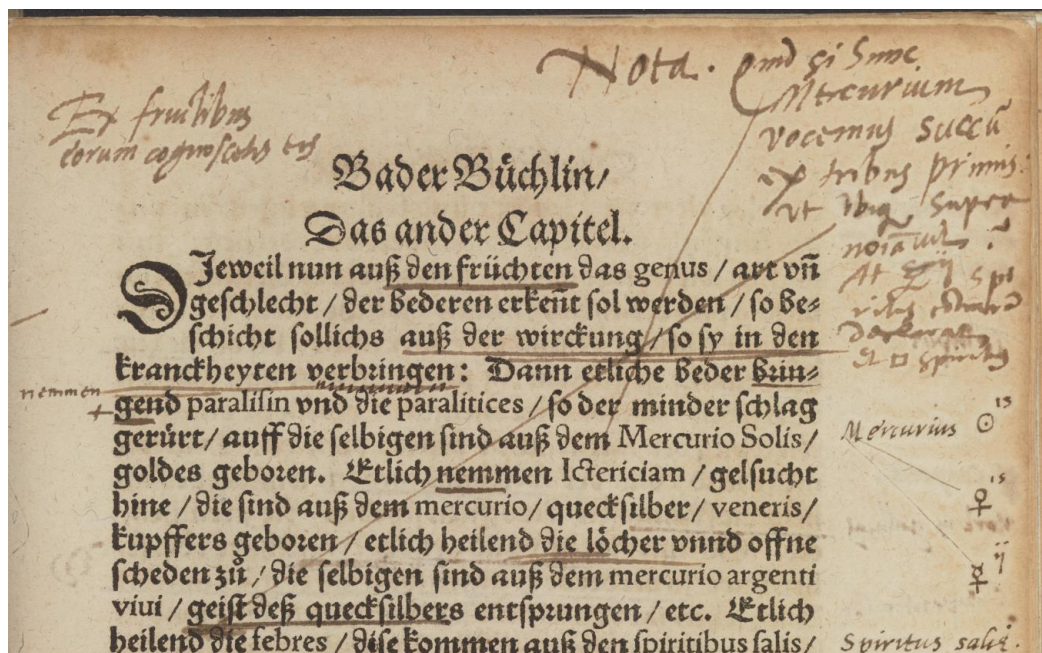 Nota. Quid si hunc
Mercurium
vocemus succū
ex tribus primis:
ut ubiq, supra
At
Ex fructibus
eorum cognoscetis eos
Bader Büchlin/
Das ander Capitel.
DJeweil nun auß den früchten das genus / art vñ
geschlecht / der bederen erkeñt sol werden / so be-
schicht sollichs auß der wirckung / so sy in den
kranckheyten verbringen: Dann etliche beder brin-
nemmen
gend paralisin vnd die paralitices / so der minder schlag
gerürt / auff die selbigen sind auß dem Mercurio Solis /
Mercurius ☉
goldes geboren. Etlich nemmen Ictericiam / gelsucht
hine / die sind auß dem mercurio / quecksilber / veneris /
♀
kupffers geboren / etlich heilend die löcher vnnd offne
scheden zů / die selbigen sind auß dem mercurio argenti
☿
viui / geist deß quecksilbers entsprungen / etc. Etlich
heilend die febres / dise kommen auß den spiritibus salis /
Spiritus salis.